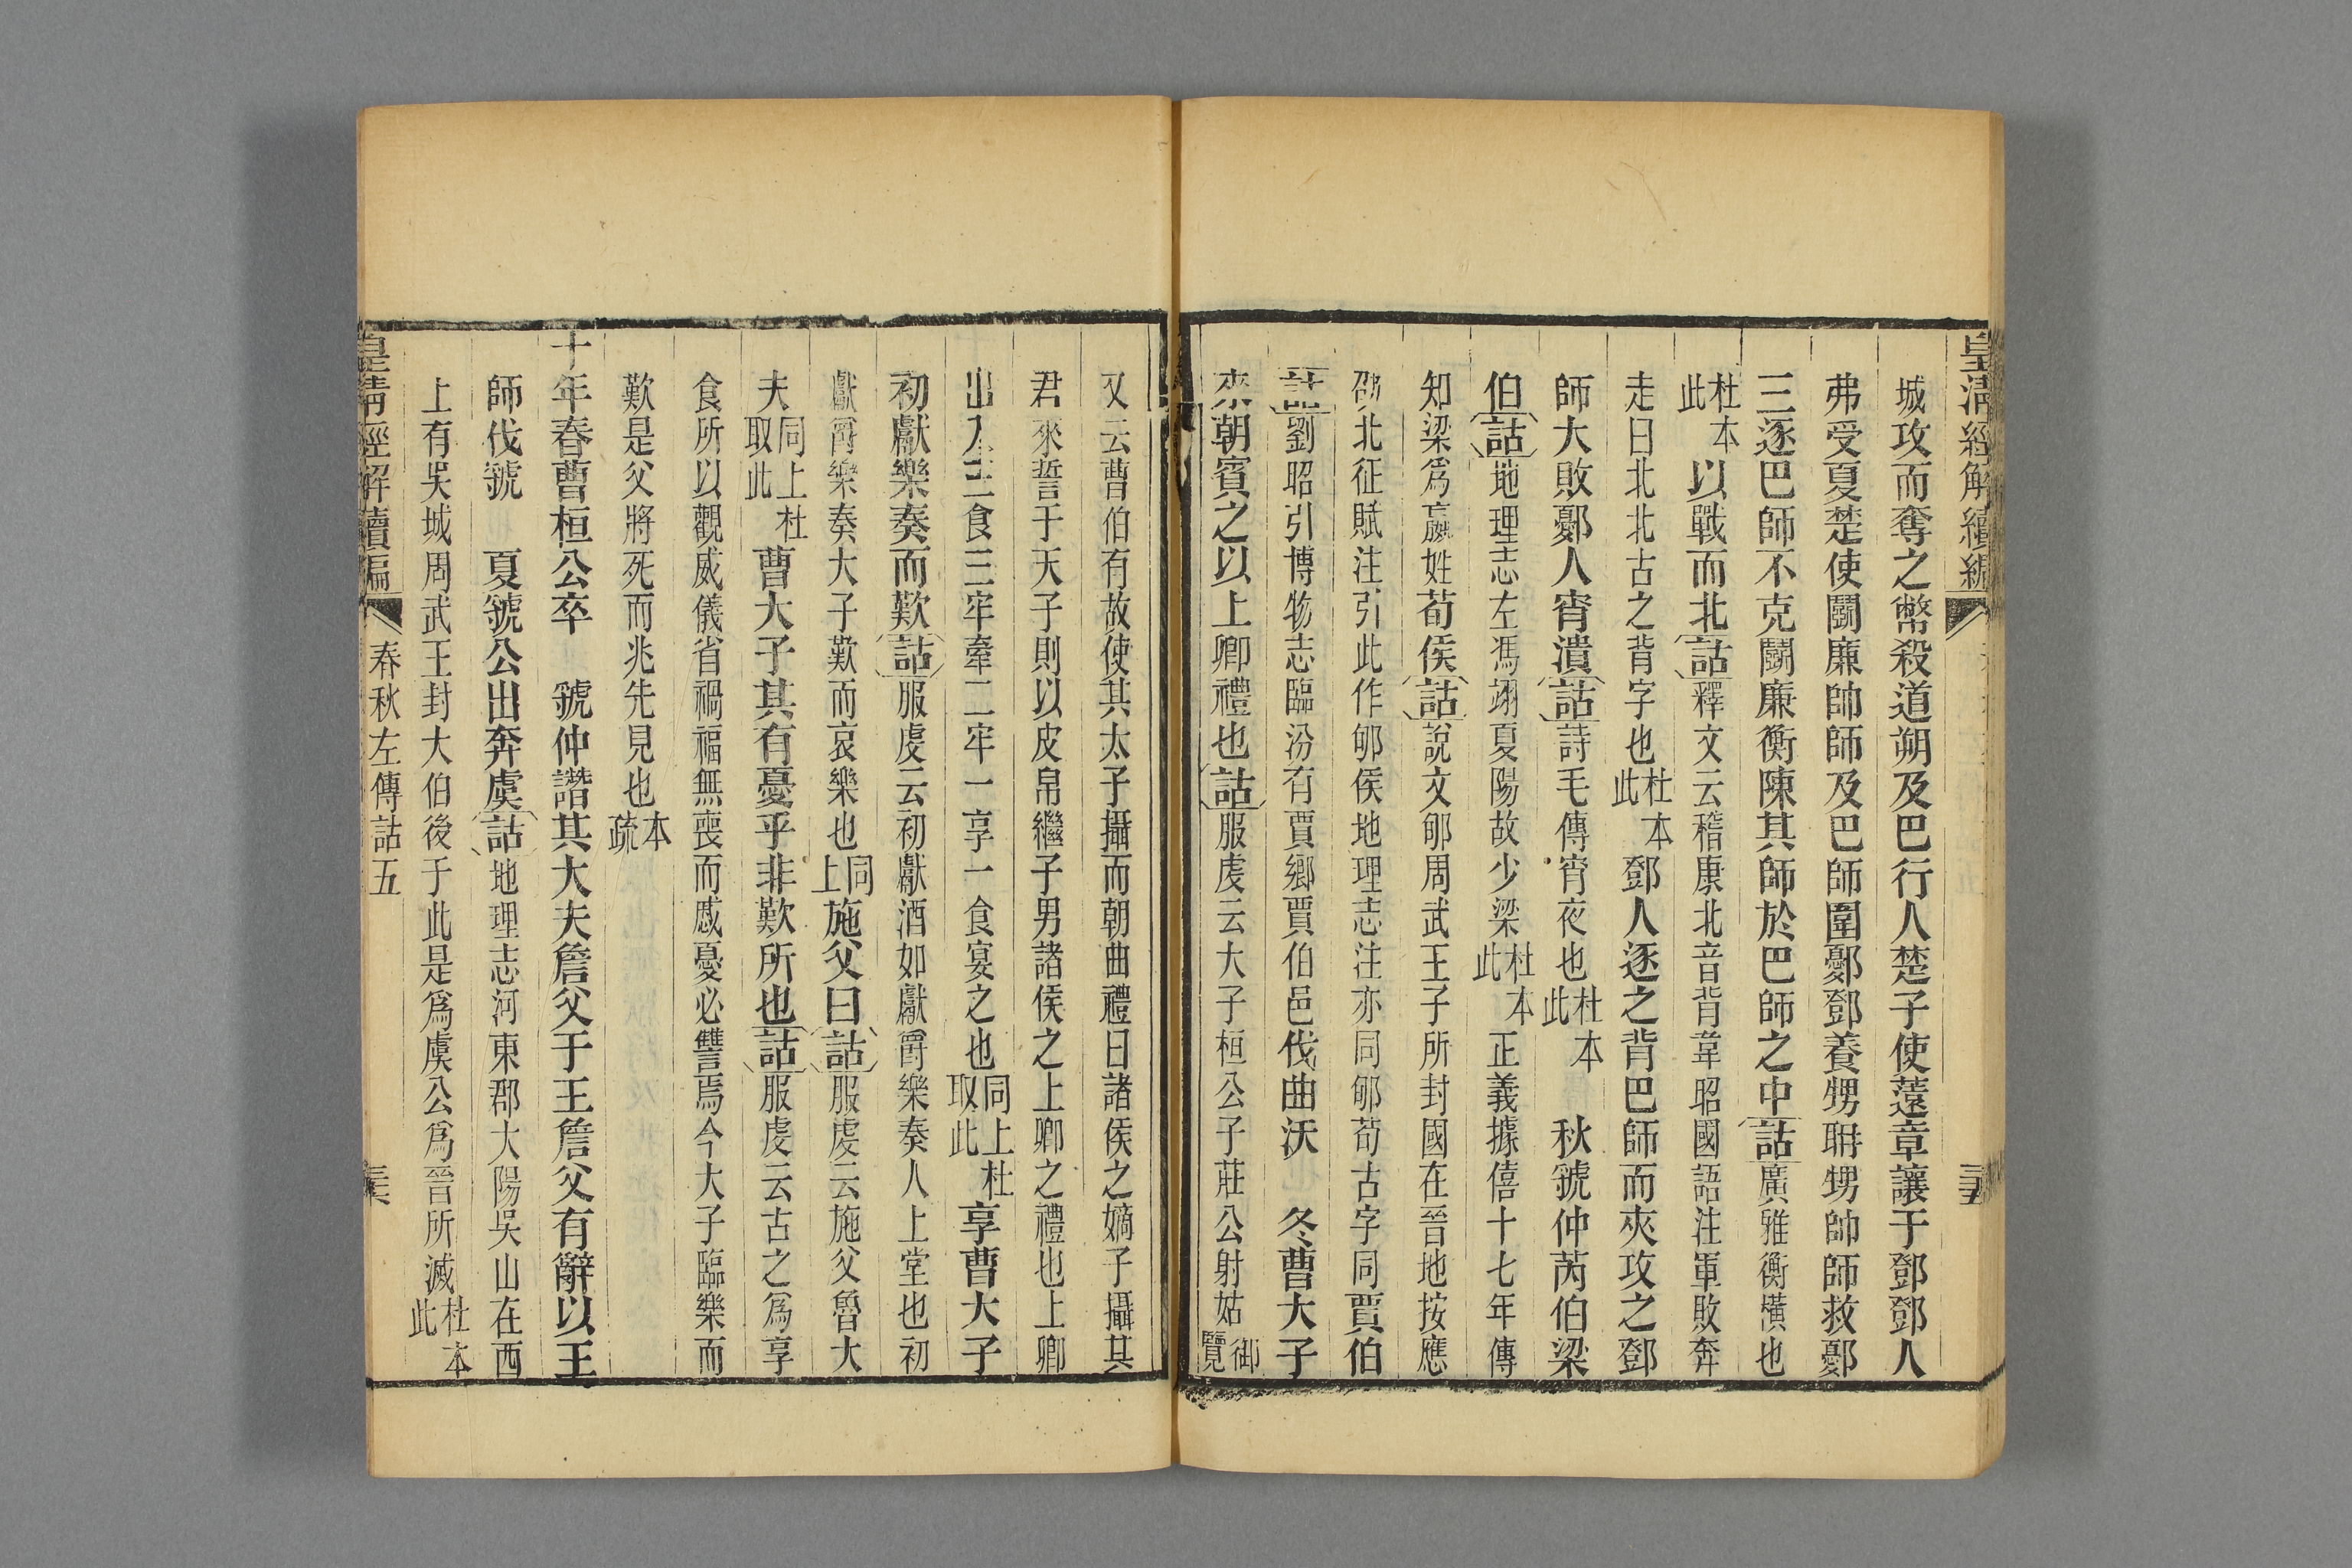 城攻而奪之幣殺道朔及巴行人楚子使薳章讓于鄧鄧人
弗受夏楚使鬭廉帥師及巴師圍鄾鄧養甥聃甥帥師救鄾
三逐巴師不克鬭廉衡陳其師於巴師之中詁廣雅衡橫也
杜本此以戰而北詁釋文云稽康北音背韋昭國語注軍敗奔
走曰北北古之背字也杜本此鄧人逐之背巴師而夾攻之鄧
師大敗鄾人宵潰詁詩毛傳宵夜也杜本此 秋虢仲芮伯梁
伯詁地理志左馮翊夏陽故少梁杜本此正義據僖十七年傳
知梁爲嬴姓荀侯詁說文郇周武王子所封國在晉地按應
邵北征賦注引此作郇侯地理志注亦同郇荀古字同賈伯
詁劉昭引博物志臨汾有賈鄉賈伯邑伐曲沃 冬曹大子
來朝賓之以上卿禮也詁服虔云大子桓公子莊公射姑御覽
又云曹伯有故使其太子攝而朝曲禮曰諸侯之嫡子攝其
君來誓于天子則以皮帛繼子男諸侯之上卿之禮也上卿
出入三食三牢牽二牢一享一食宴之也同上杜取此享曹大子
初獻樂奏而歎詁服虔云初獻酒如獻爵樂奏人上堂也初
獻爵樂奏大子歎而哀樂也同上施父曰詁服虔云施父魯大
夫同上杜取此曹大子其有憂乎非歎所也詁服虔云古之爲享
食所以觀威儀省禍福無喪而慼憂必讐焉今大子臨樂而
歎是父將死而兆先見也本疏
十年春曹桓公卒 虢仲譖其大夫詹父于王詹父有辭以王
師伐虢 夏虢公出奔虞詁地理志河東郡大陽吳山在西
上有吳城周武王封大伯後于此是爲虞公爲晉所滅杜本此
皇清經解續編 春秋左傳詁五